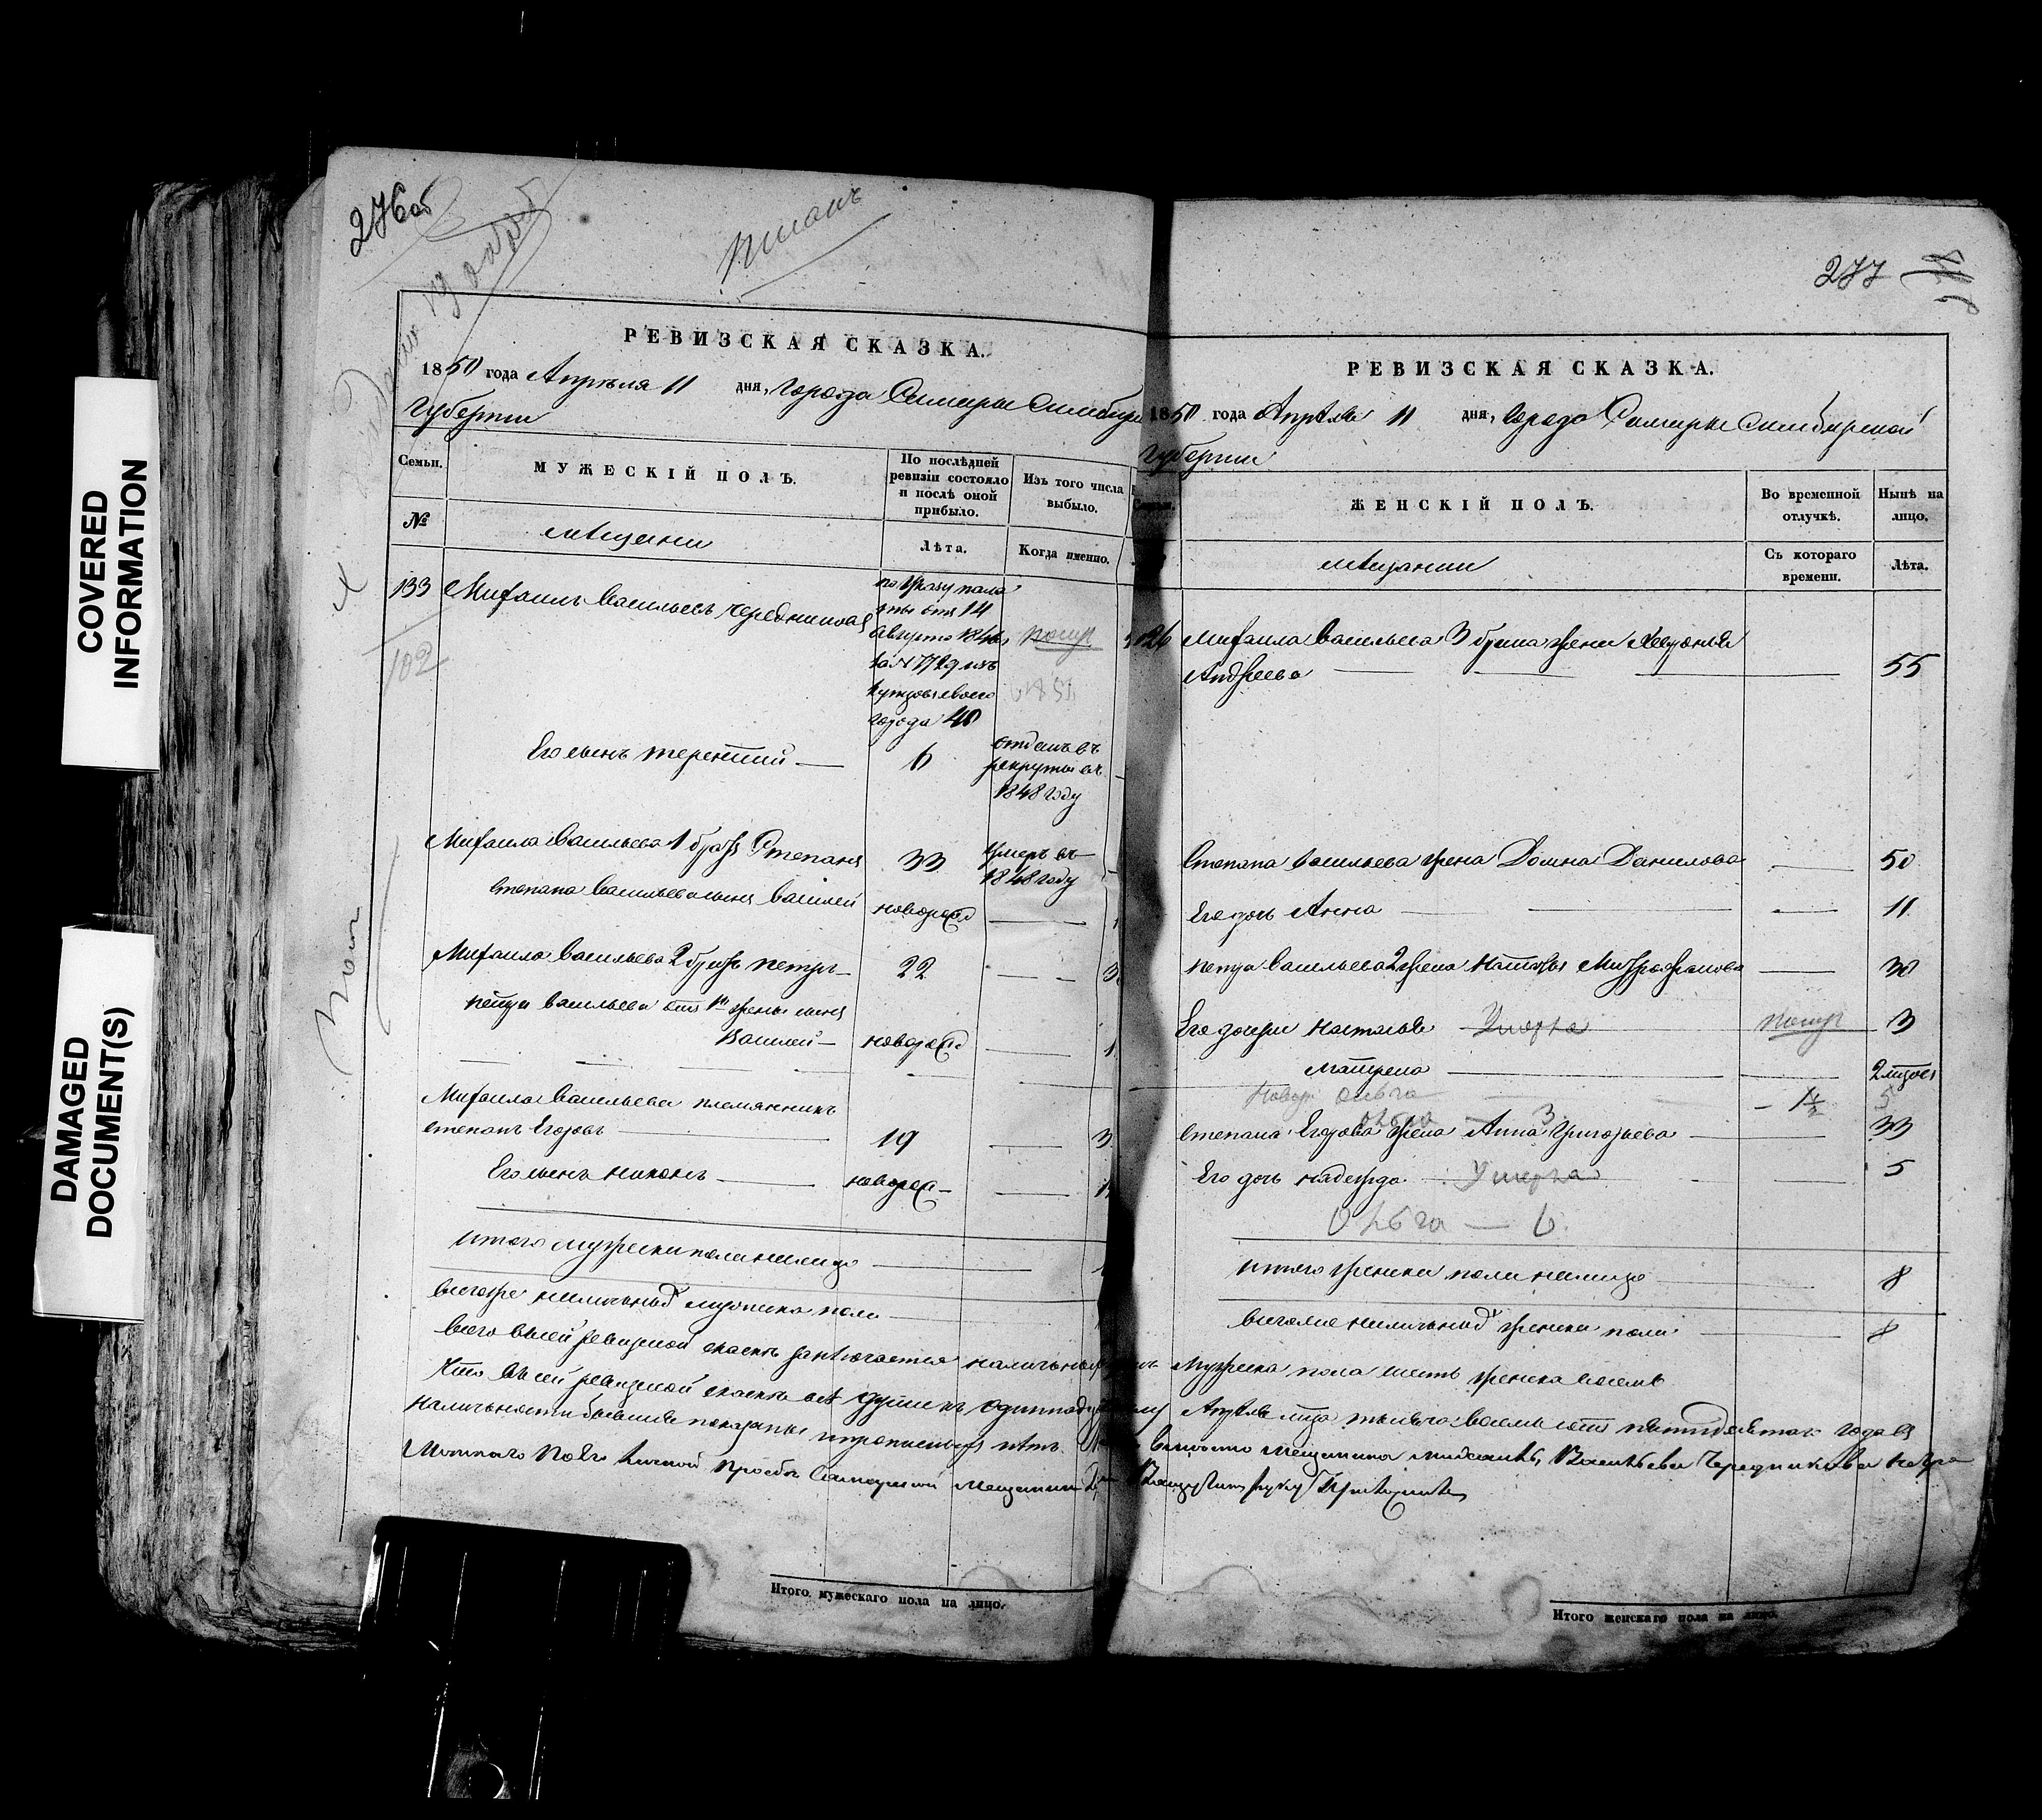 COVERED
INFORMATION
DAMAGED
DOCUMENT(S)
276об
РЕВИЗСКАЯ СКАЗКА.
1850 года Апреля 11 дня, города Самары Симбирс
губернии
Семьи.
МУЖЕСКІЙ ПОЛЪ.
По послѣдней
ревизіи состояло
и послѣ оной
прибыло.
Изъ того числа
выбыло.
№
мещани
Лѣта.
Когда именно.
133 Михаилъ Васильевъ Чередников
по указу пала
ты отъ 14
августа 184
за № 7729 изъ
купцовъ своего
города 40
102
Его сынъ Терентий — 6
отданъ въ
рекруты въ
1848 году
Михаила Васильева 1 братъ Степанъ 33
умеръ въ
1848 году
Степана Васильева сынъ Василей новорожд
Михаила Васильева 2 братъ Петръ 22
Петра Васильева отъ 1й жены сынъ
Василей — новорожд
Михаила Васильева племянникъ
Степанъ Егоровъ 19
Его сынъ Никонъ — новорож
Итого мужеска пола налицо
Всего же наличныхъ мужеска пола
277
РЕВИЗСКАЯ СКАЗКА.
1850 года Апреля 11 дня, города Самары Симбирской
губернии
Семьи.
ЖЕНСКІЙ ПОЛЪ.
Во временной
отлучкѣ.
Нынѣ на
лицо.
мещании
Съ котораго
времени.
Лѣта.
Михаила Васильева 3 брака жена
Андреева 55
Степана Васильева жена Домна Данилова 50
Его дочь Анна 11
Петра Васильева 2 жена Наталья Митрофанова 30
Его дочери Наталья Умерла 3
Матрена 2 мцов
Новор Ольга
Степана Егорова жена Анна Григорьева 33
Его дочь Надежда Умерла 5
Ольга — 6.
Итого женска пола налицо 8
Всего же наличныхъ женска пола 8
Всего въ сей ревизской сказке заключается наличных мужеска пола шесть женска восемь
Что въ сей ревизской сказке все души къ одиннадцатому Апреля тца тысяча восемь сотъ пятидесятого года въ
наличности бывшие показаны и прописныхъ нетъ мещанина Михаила Васильева Чередникова негра
мотнаго по его личной прозбе Самарской мещанин руку приложилъ
Итого мужескаго пола на лицо.
Итого женскаго пола на лицо.